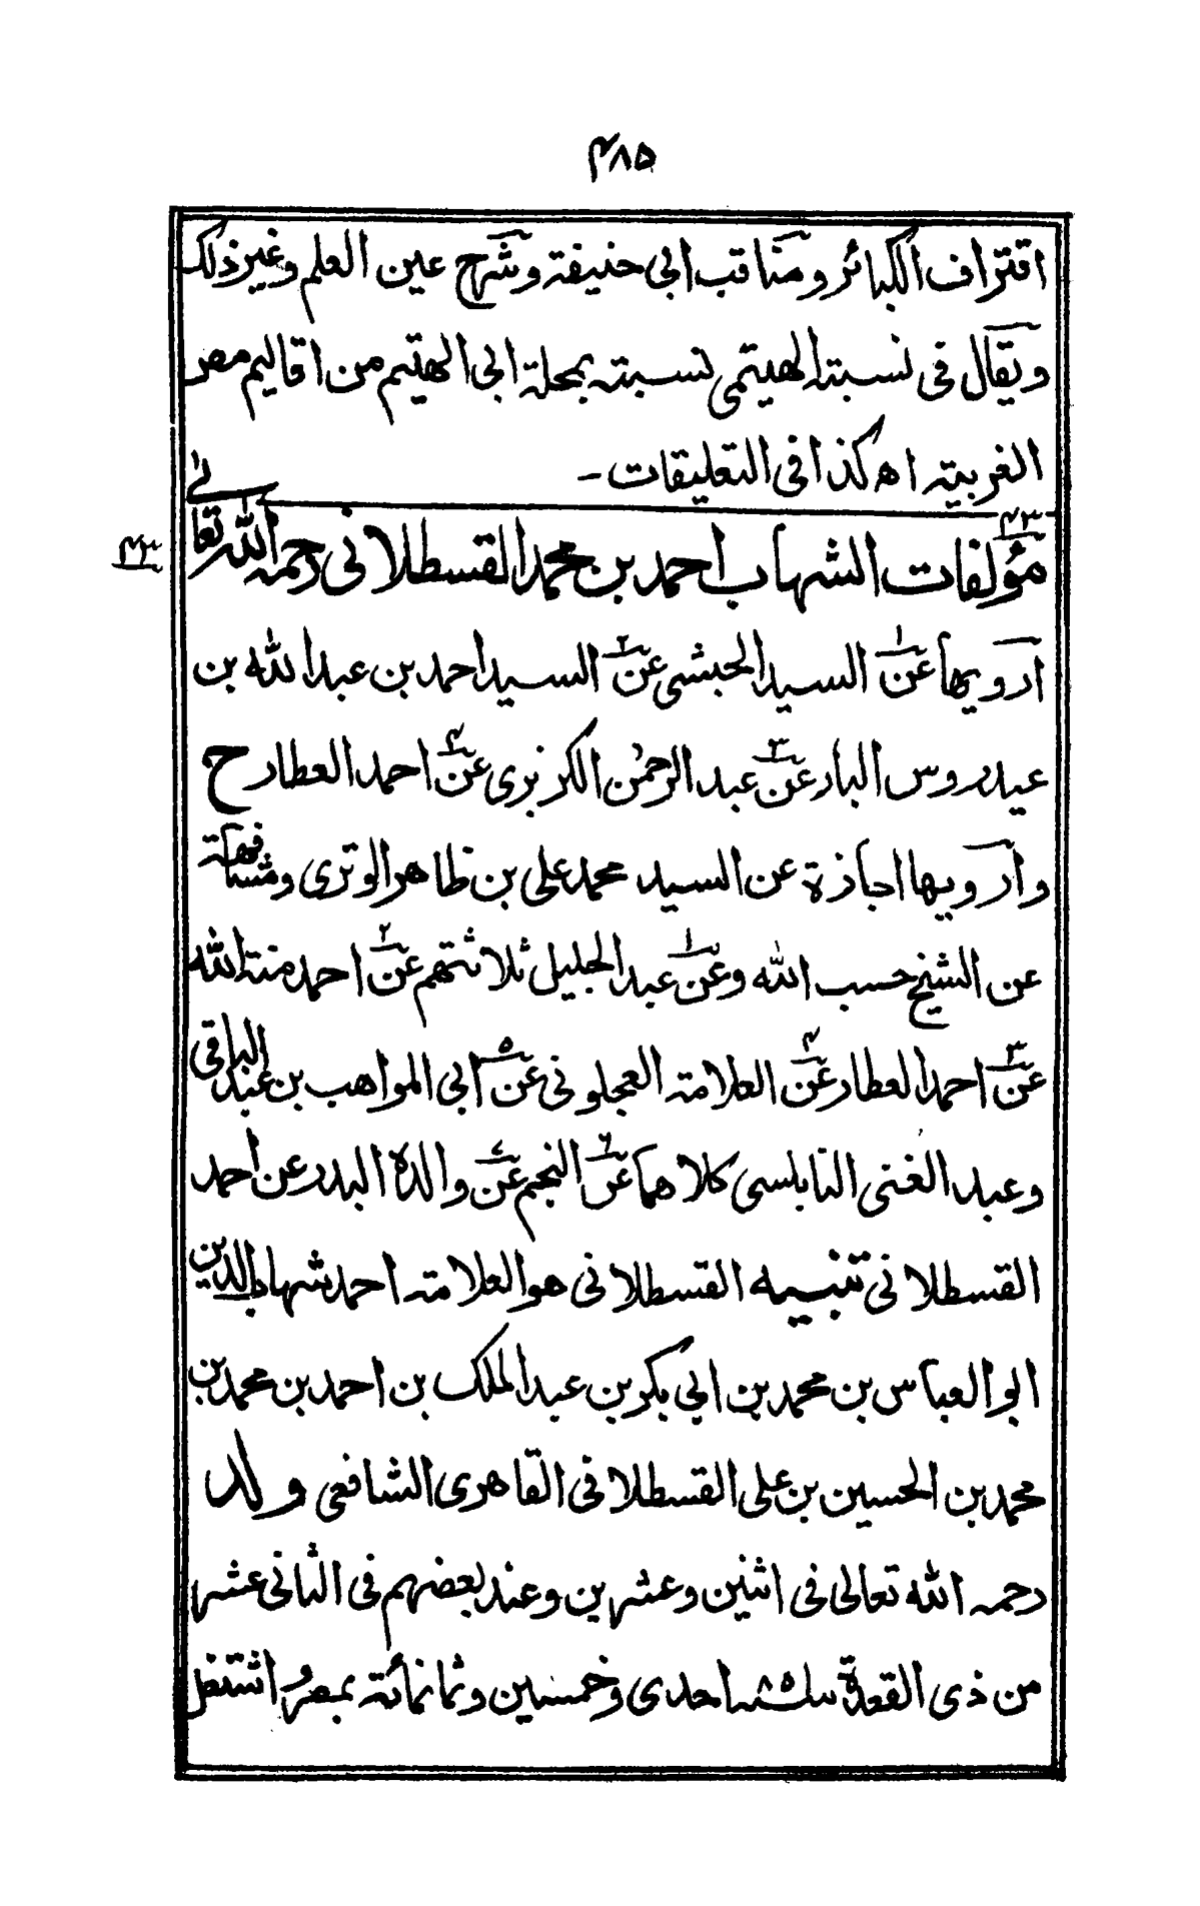 ۴۸۵
اقتراف الكبائر ومناقب ابى حنيفة وشرح عين العلم وغير ذلك
ويقال فى نسبته الهيتمى نسبته بمحلة ابى الهيتم من اقاليم مصر
الغربية اه كذا فى التعليقات -
۴۳ مؤلفات الشهاب احمد بن محمد القسطلانى رحمه الله تعالىٰ ۴۳
ارويها عن۱ السيد الحبشى عن۲ السيد احمد بن عبد الله بن
عيدروس البار عن۳ عبد الرحمٰن الكزبرى عن۴ احمد العطار ح
وارويها اجازة عن السيد محمد على بن ظاهر الوترى ومشافهة
عن الشيخ حسب الله وعن۱ عبد الجليل ثلاثتهم عن۲ احمد منة الله
عن۳ احمد العطار عن۴ العلامة العجلونى عن۵ ابى المواهب بن عبد الباقى
وعبد الغنى النابلسى كلاهما عن۶ النجم عن۷ والده البدر عن احمد
القسطلانى تنبيه القسطلانى هو العلامة احمد شهاب الدين
ابو العباس بن محمد بن ابى بكر بن عبد الملك بن احمد بن محمد بن
محمد بن الحسين بن على القسطلانى القاهرى الشافعى ولد
رحمه الله تعالى فى اثنين وعشرين وعند بعضهم فى الثانى عشر
من ذى القعدة سنة ۸۵۱ احدى وخمسين وثمانمائة بمصر واشتغل